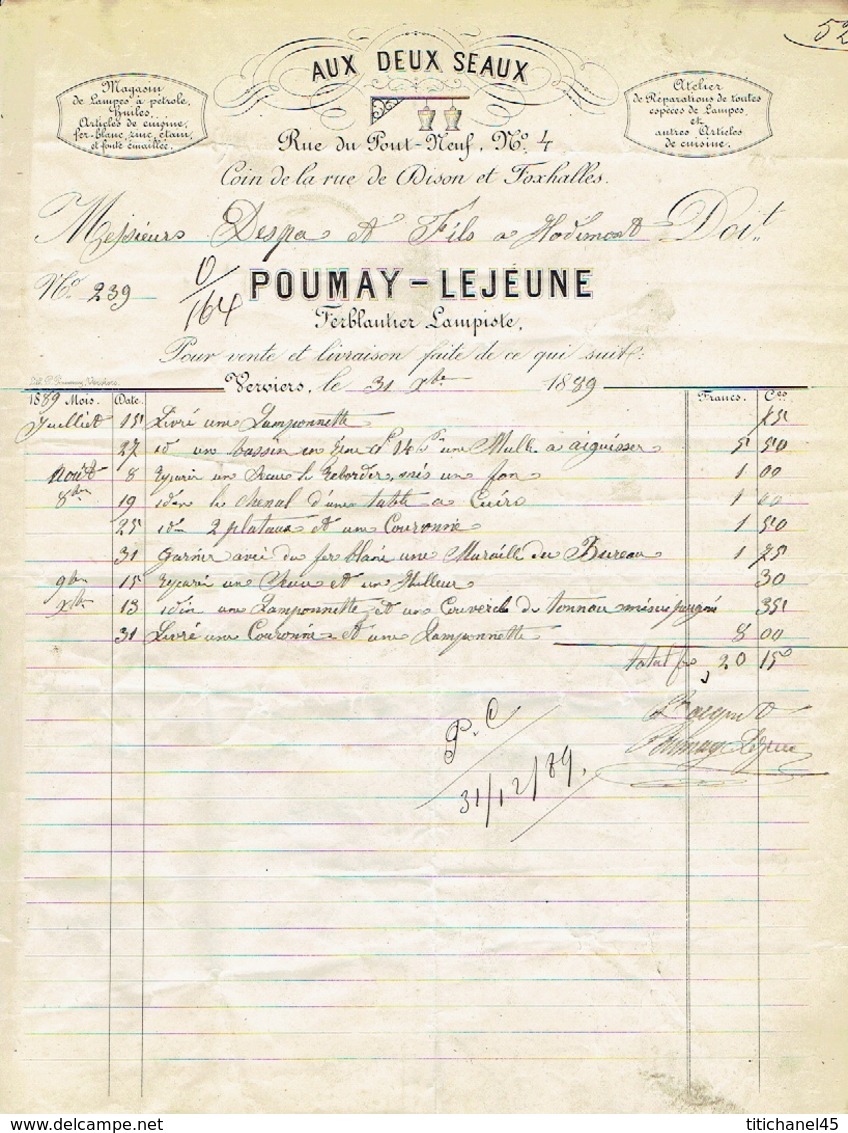 52
AUX DEUX SEAUX
Magasin
de Lampes à pétrole,
huiles,
Articles de cuisine,
fer-blanc, zinc, étain,
et fonte émaillée.
Atelier
de Réparations de toutes
espèces de Lampes,
et
autres Articles
de cuisine.
Rue du Pont-Neuf, No. 4
Coin de la rue de Dison et Foxhalles.
Messieurs Despa et Fils a Hodimont Doit
No. 239
0/164
POUMAY-LEJEUNE
Ferblantier Lampiste,
Pour vente et livraison faite de ce qui suit:
Verviers, le 31 Xbre 1889
1889 Mois. Date. Francs. Ces
Juilliet 15 Livré une Lamponnette 75
27 id un bassin en une a aiguisser 5 50
Aout 8 reparér un Seau le reborder, mis un fon 1 00
8bre 19 idem le chenal d'une table a Cuire 1 00
25 idm 2 plataux et une Couronne 1 50
31 garnir avec du fer blanc une Muraille du Bureau 1 75
9bre 15 reparé un Seau et un Huilleur 30
Xbre 13 idem une Lamponnette et un Couvercle de tonnau 35
31 Livré une Couronne et une Lamponnette 8 00
total frs 20 15
Pr acquit
Poumay Lejeune
P. C
31/12/89.
titichanel45